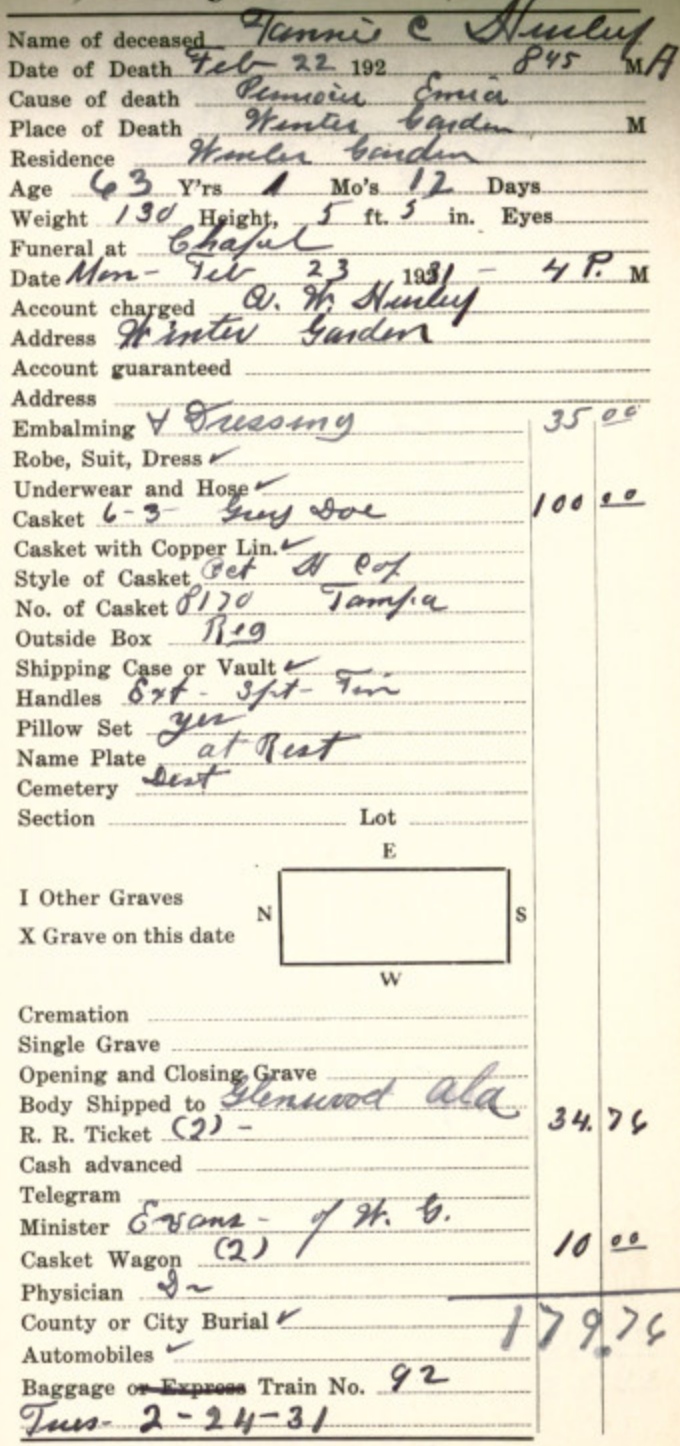 Name of deceased Fannie C Husley
Date of Death Feb 22 192 845 M A
Cause of death
Place of Death Winter Garden M
Residence Winter Garden
Age 63 Y'rs 1 Mo's 12 Days
Weight 130 Height, 5 ft. 5 in. Eyes
Funeral at Chapel
Date Mon - Feb 23 1931 - 4 P. M
Account charged W. Husley
Address Winter Garden
Account guaranteed
Address
Embalming & Dressing 35 00
Robe, Suit, Dress ✓
Underwear and Hose ✓
Casket 6-3 Grey Doe 100 00
Casket with Copper Lin. ✓
Style of Casket Oct
No. of Casket 8170 Tampa
Outside Box Reg
Shipping Case or Vault ✓
Handles Ext - 3pt -
Pillow Set yes
Name Plate at Rest
Cemetery
Section Lot
E
I Other Graves
N S
X Grave on this date
W
Cremation
Single Grave
Opening and Closing Grave
Body Shipped to Glenwood Ala
R. R. Ticket (2) - 34.76
Cash advanced
Telegram
Minister Evans - of W. G.
Casket Wagon (2) 10 00
Physician
County or City Burial ✓ 179.76
Automobiles ✓
Baggage or Express Train No. 92
Tues - 2-24-31